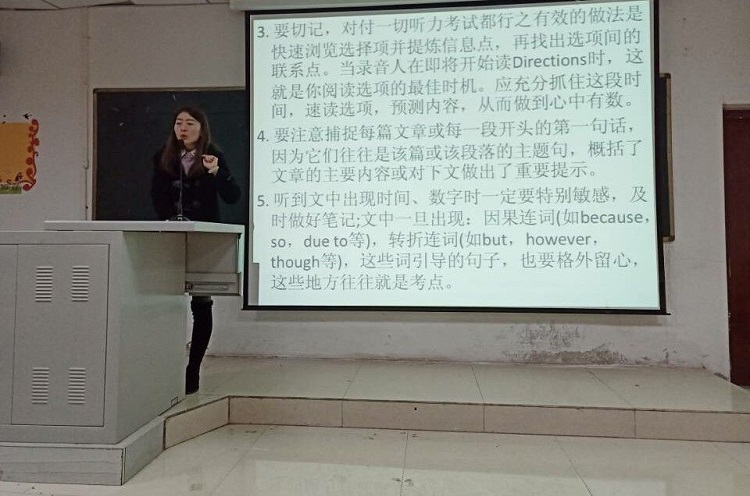 3. 要切记，对付一切听力考试都行之有效的做法是
快速浏览选择项并提炼信息点，再找出选项间的
联系点。当录音人在即将开始读Directions时，这
就是你阅读选项的最佳时机。应充分抓住这段时
间，速读选项，预测内容，从而做到心中有数。
4. 要注意捕捉每篇文章或每一段开头的第一句话，
因为它们往往是该篇或该段落的主题句，概括了
文章的主要内容或对下文做出了重要提示。
5. 听到文中出现时间、数字时一定要特别敏感，及
时做好笔记;文中一旦出现：因果连词(如because，
so，due to等)，转折连词(如but，however，
though等)，这些词引导的句子，也要格外留心，
这些地方往往就是考点。